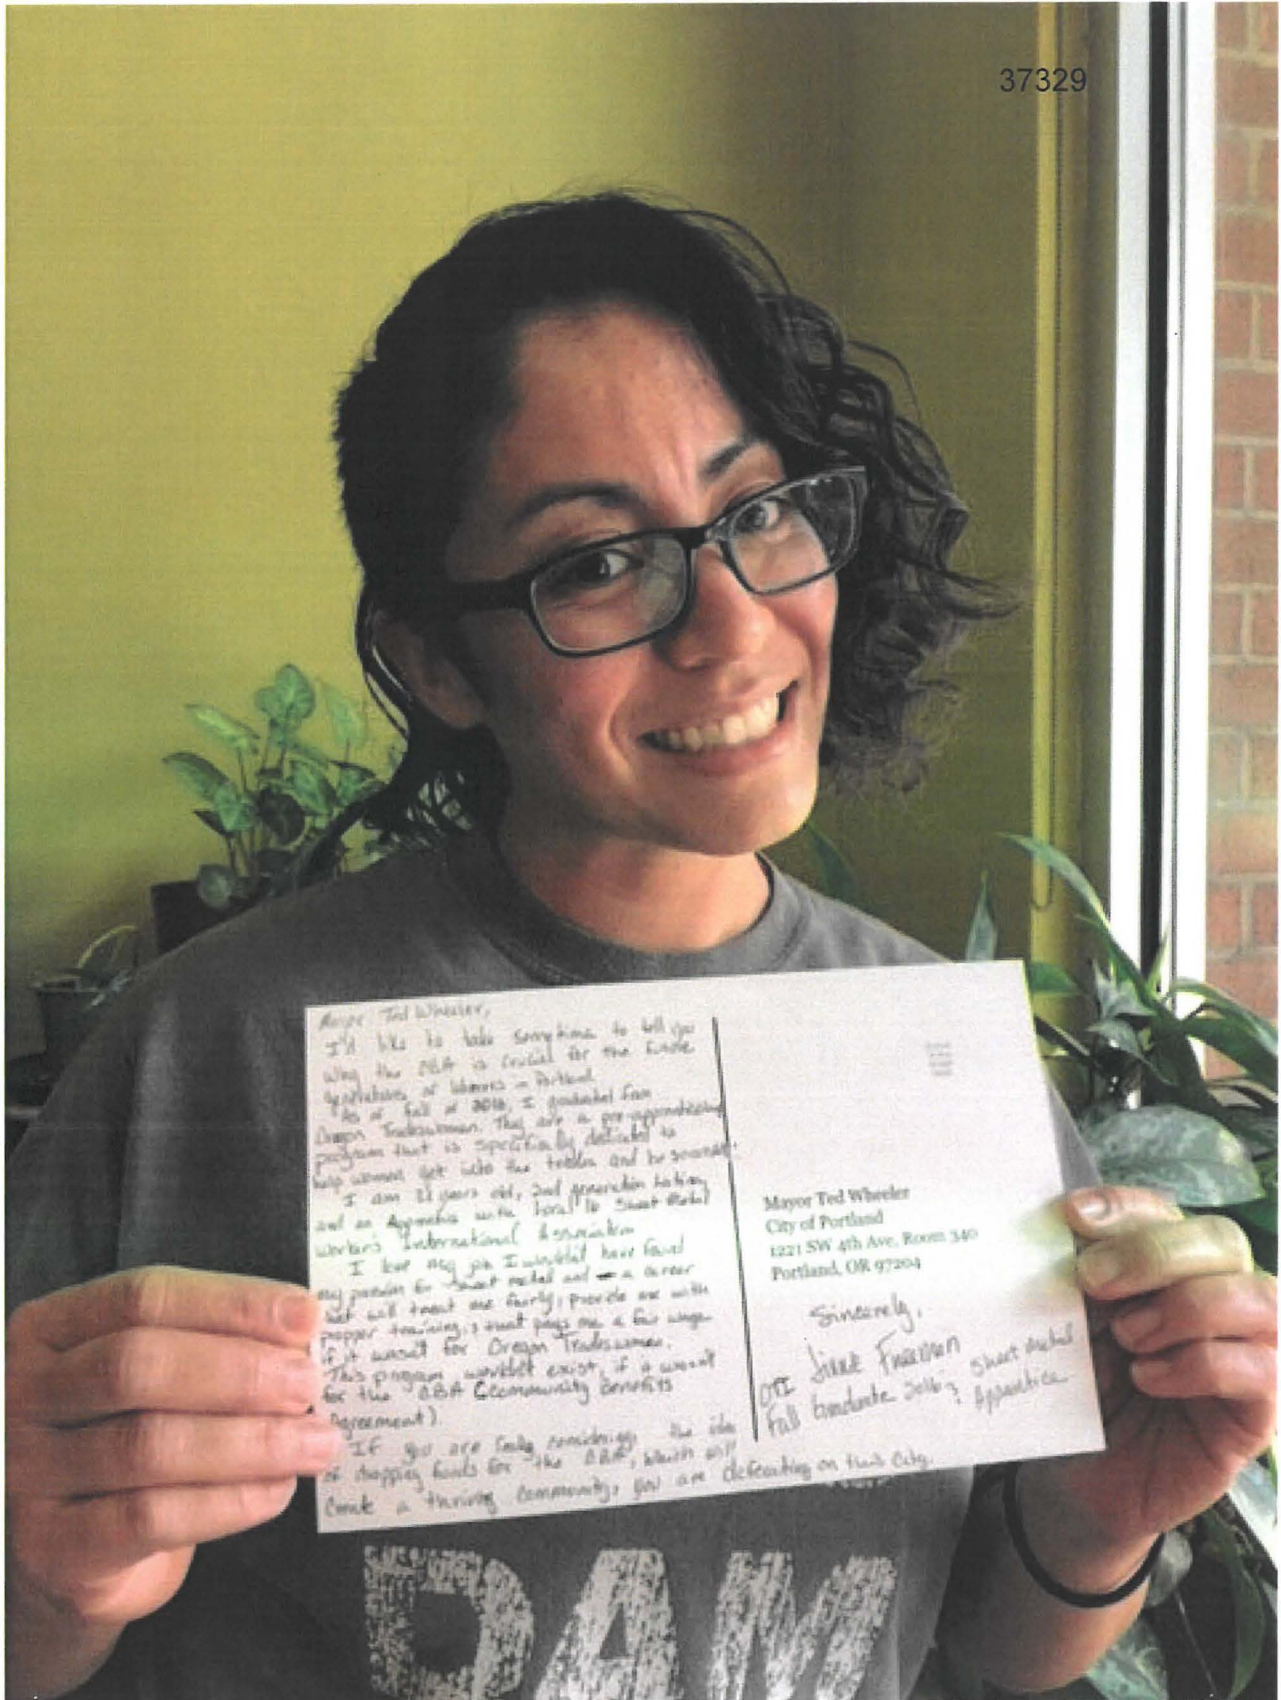 37329
Mayor Ted Wheeler,
I'd like to take sometime to tell you
why the CBA is crucial for the future
generations of laborers in Portland.
As of Fall of 2016, I graduated from
Oregon Tradeswomen. They are a pre-apprenticeship
program that is specifically dedicated to
help women get into the trades and be successful.
I am 21 years old, 2nd generation
and an Apprentice with Local 16 Sheet Metal
Workers International Association
I love my job I wouldn't have found
my passion for sheet metal and a career
that will treat me fairly, provide me with
propper training, & that pays me a fair wage
if it wasn't for Oregon Tradeswomen.
This program wouldn't exist, if it wasn't
for the CBA (Community Benefits
Agreement).
If you are considering the idea
of dropping funds for the CBA, which will
create a thriving community, you are defecating on this City.
Mayor Ted Wheeler
City of Portland
1221 SW 4th Ave, Room 340
Portland, OR 97204
Sincerely,
Freeman
OTI
Fall Graduate 2016 & Sheet metal
Apprentice
DAM